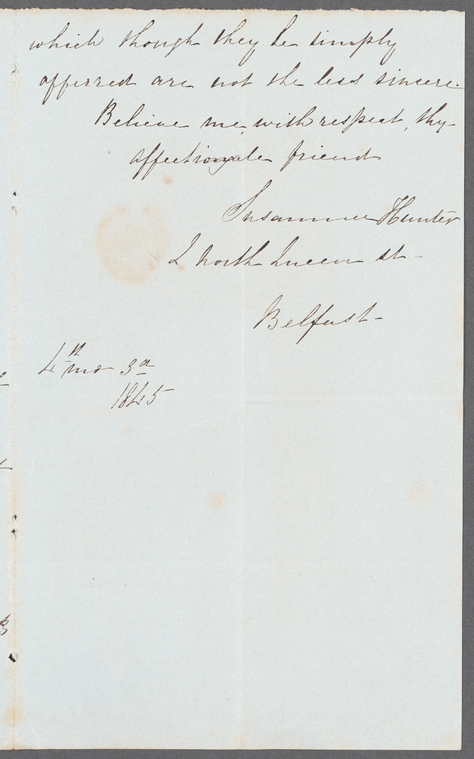 which though they be simply
offerred are not the less sincere.
Believe me, with respect, thy
affectionate friend
Susanna Hunter
2 North Queen st
Belfast
4th mo 3d
1845